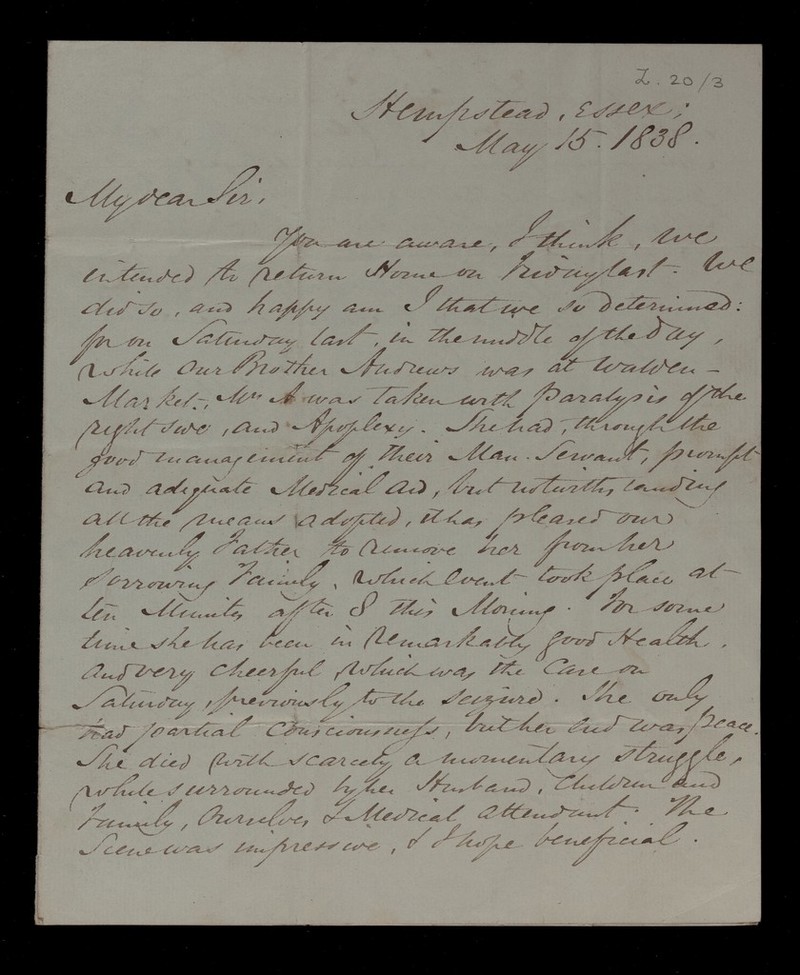 L. 20/3
Hempstead, Essex;
May 15. 1838.
My dear Sir,
You are aware, I think, we
intended to return Home on Friday last. We
did so, and happy am I that we so determined:
for on Saturday last, in the middle of the Day,
while our Brother Andrews was at Walden-
Market-, Mrs A was taken with Paralysis of the
right side, and Apoplexy. She had, through the
good management of their Man-Servant, prompt
and adequate Medical Aid, but notwithstanding
all the means adopted, it has pleased our
heavenly Father to remove her from her
sorrowing Family, which event took place at
ten Minutes after 8 this Morning. For some
time she has been in remarkably good Health,
and very cheerful, which was the Case on
Saturday, previously to the seizure. She only
had partial consciousness, but her end was peace.
She died with scarcely a momentary struggle,
while surrounded by her Husband, Children and
Family, Ourselves & Medical attendant. The
Scene was impressive, & I hope beneficial.